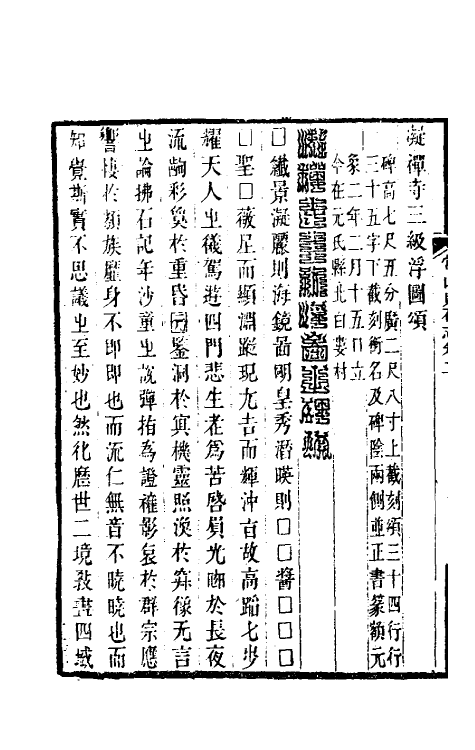 凝禪寺三級浮圖頌
碑高七尺五分廣二尺八寸上截刻頌三十四行行
三十五字下截刻銜名及碑陰兩側並正書篆額元
象二年二月十五日立
今在元氏縣北白婁村
□纖景凝麗則海鏡啚明皇秀潛暎則□□醬□□□
□聖□薇星而顯淵蹤現九𠮷而輝沖旨故高蹈七步
耀天人㞢儀駕遊四門悲生老爲苦啓眉光𣅜於長夜
流齠彩奐於重昏圓鑒洞於眞機靈照渙於筭祿无言
㞢論拂石記年沙童㞢說彈指爲證雖影裒於群宗應
響棲於類族塵身不即即也而流仁無音不曉曉也而
知覺斯實不思議㞢至妙也然化歷世二境敎晝四域